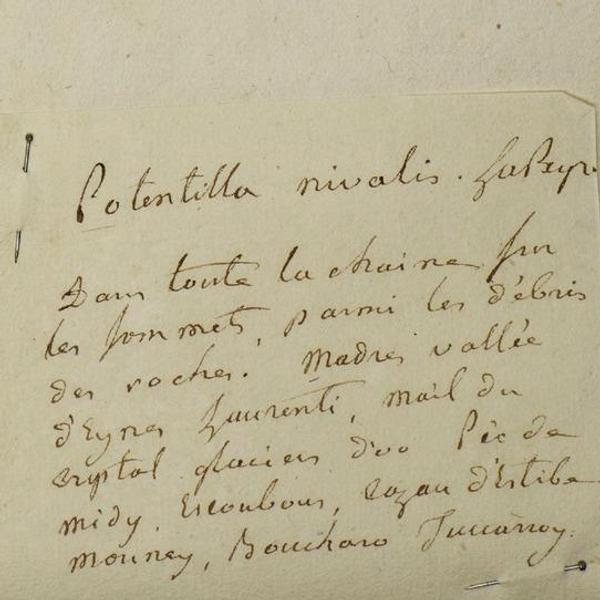 Potentilla nivalis. LaPeyr.
Dans toute la chaine sur
les sommets, parmi les débris
des roches. Madres vallée
d'Eynes Laurenti, mail du
crystal glaciers d'oo Pic de
midy. Escoubous, d'Estibe
mouney, Boucharo